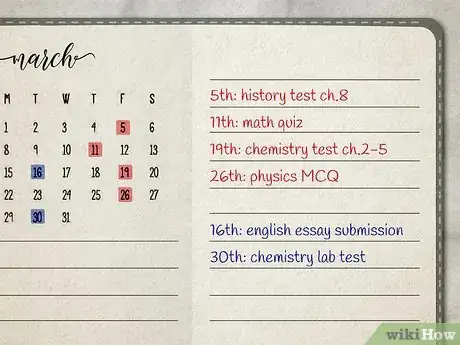 march
M T W T F S
1 2 3 4 5 6
8 9 10 11 12 13
15 16 17 18 19 20
22 23 24 25 26 27
29 30 31
5th: history test ch.8
11th: math quiz
19th: chemistry test ch.2-5
26th: physics MCQ
16th: english essay submission
30th: chemistry lab test
wikiHow